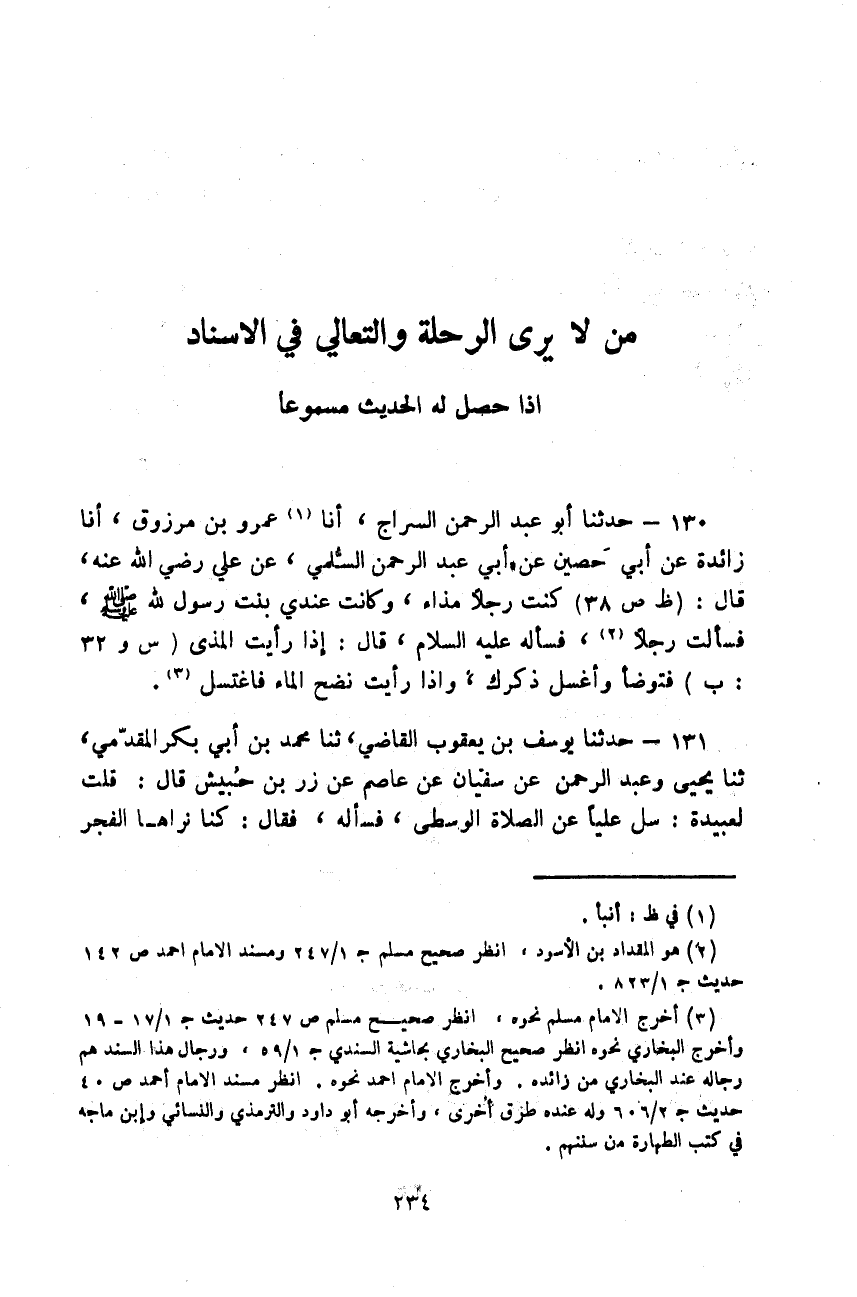 من لا يرى الرحلة والتعالي في الاسناد
اذا حصل له الحديث مسموعا
١٣٠ – حدثنا أبو عبد الرحمن السراج ، أنا (١) عمرو بن مرزوق ، أنا
زائدة عن أبي حصين عن أبي عبد الرحمن السُّلمي ، عن علي رضي الله عنه ،
قال : (ظ ص ٣٨) كنت رجلاً مذاء ، وكانت عندي بنت رسول لله ﷺ ،
فسألت رجلاً (٢) ، فسأله عليه السلام ، قال : إذا رأيت المذى ( س و ٣٢
: ب ) فتوضأ وأغسل ذكرك ، واذا رأيت نضح الماء فاغتسل (٣) .
١٣١ – حدثنا يوسف بن يعقوب القاضي ، ثنا محمد بن أبي بكر المقدّمي ،
ثنا يحيى وعبد الرحمن عن سفيان عن عاصم عن زر بن حُبيش قال : قلت
لعبيدة : سل علياً عن الصلاة الوسطى ، فسأله ، فقال : كنا نراهـا الفجر
(١) في ظ : أنبأ .
(٢) هو المقداد بن الأسود ، انظر صحيح مسلم ج ٢٤٧/١ ومسند الامام احمد ص ١٤٢
حديث ج ٨٢٣/١ .
(٣) أخرج الامام مسلم نحوه ، انظر صحيــح مسلم ص ٢٤٧ حديث ج ١٧/١ – ١٩
وأخرج البخاري نحوه انظر صحيح البخاري بحاشية السندي ج ٥٩/١ ، ورجال هذا السند هم
رجاله عند البخاري من زائده . وأخرج الامام احمد نحوه . انظر مسند الامام أحمد ص ٤٠
حديث ج ٦٠٦/٢ وله عنده طرق أخرى ، وأخرجه أبو داود والترمذي والنسائي وإبن ماجه
في كتب الطهارة من سننهم .
٢٣٤